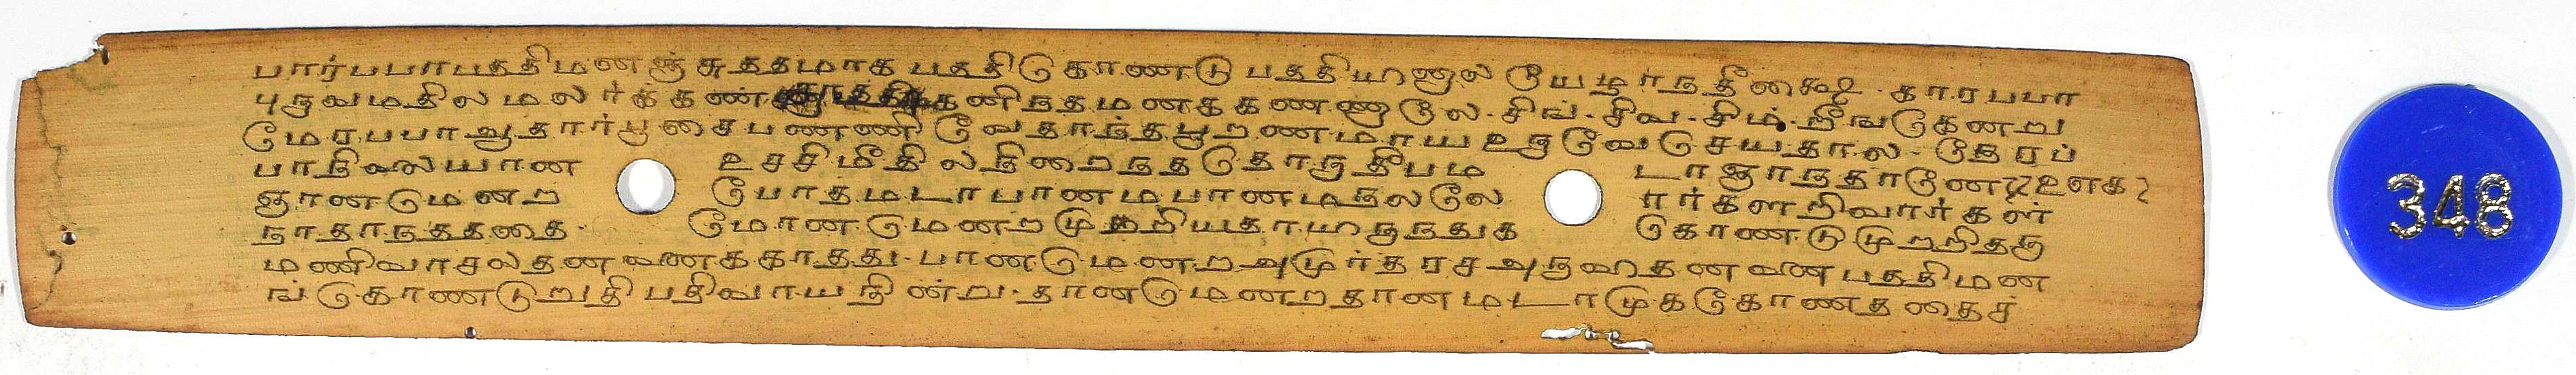 பார்பபாபததிமனஞ்சுததமாக பததிகொணடு பததியாஜல யேமாநதீக்ஷை. காரபபா
புருவமதிலமலர்க்கண் கனிநதமனக்கணணுலே. சிங். சிவ. சிம். றீங்கெனறு
மேரபபா ஆதார்பூசைபணணி வேதாந்தபூறணமாய உருவேசெயதால. தேரப்
பாநிலையான உசசிமீதில்நிறைநததொருதீபம டாஞாநதானே உஎக
ஞானமெனற போதமடாபானமபானமதலலே ார்களறிவார்கள்
நாதாநதததை. மோனமெனறமுததிறியதாயாருநதுக கொணடுமுறறிதரு
மணிவாசல்தனைககாதது. பானமெனற அமுர்தரச அருஹதனை பததிமன
ங்கொணடுறுதி பதிவாயநின்று. தானமெனறதானமடாமுககோணததைச்